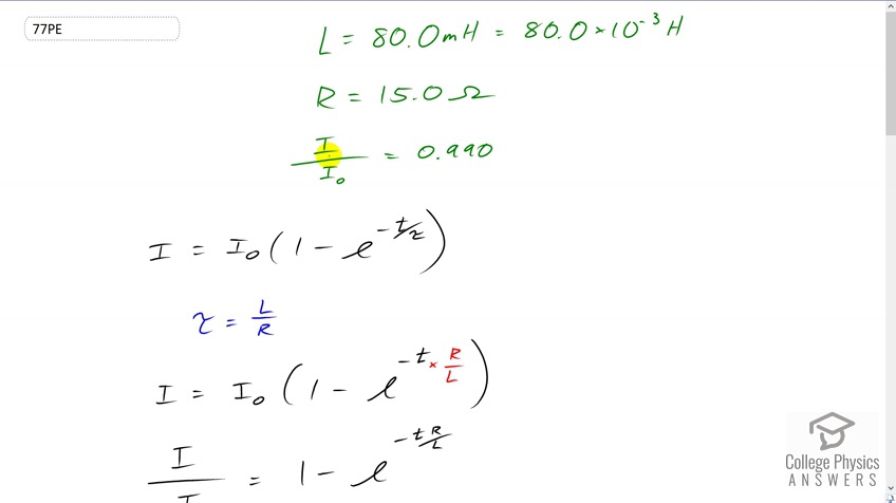 77PE
L = 80.0mH = 80.0 × 10⁻³ H
R = 15.0 Ω
I/I₀ = 0.990
I = I₀(1 − e^(−t/τ))
τ = L/R
I = I₀(1 − e^(−t × R/L))
I/I = 1 − e^(−tR/L)
College Physics
ANSWERS